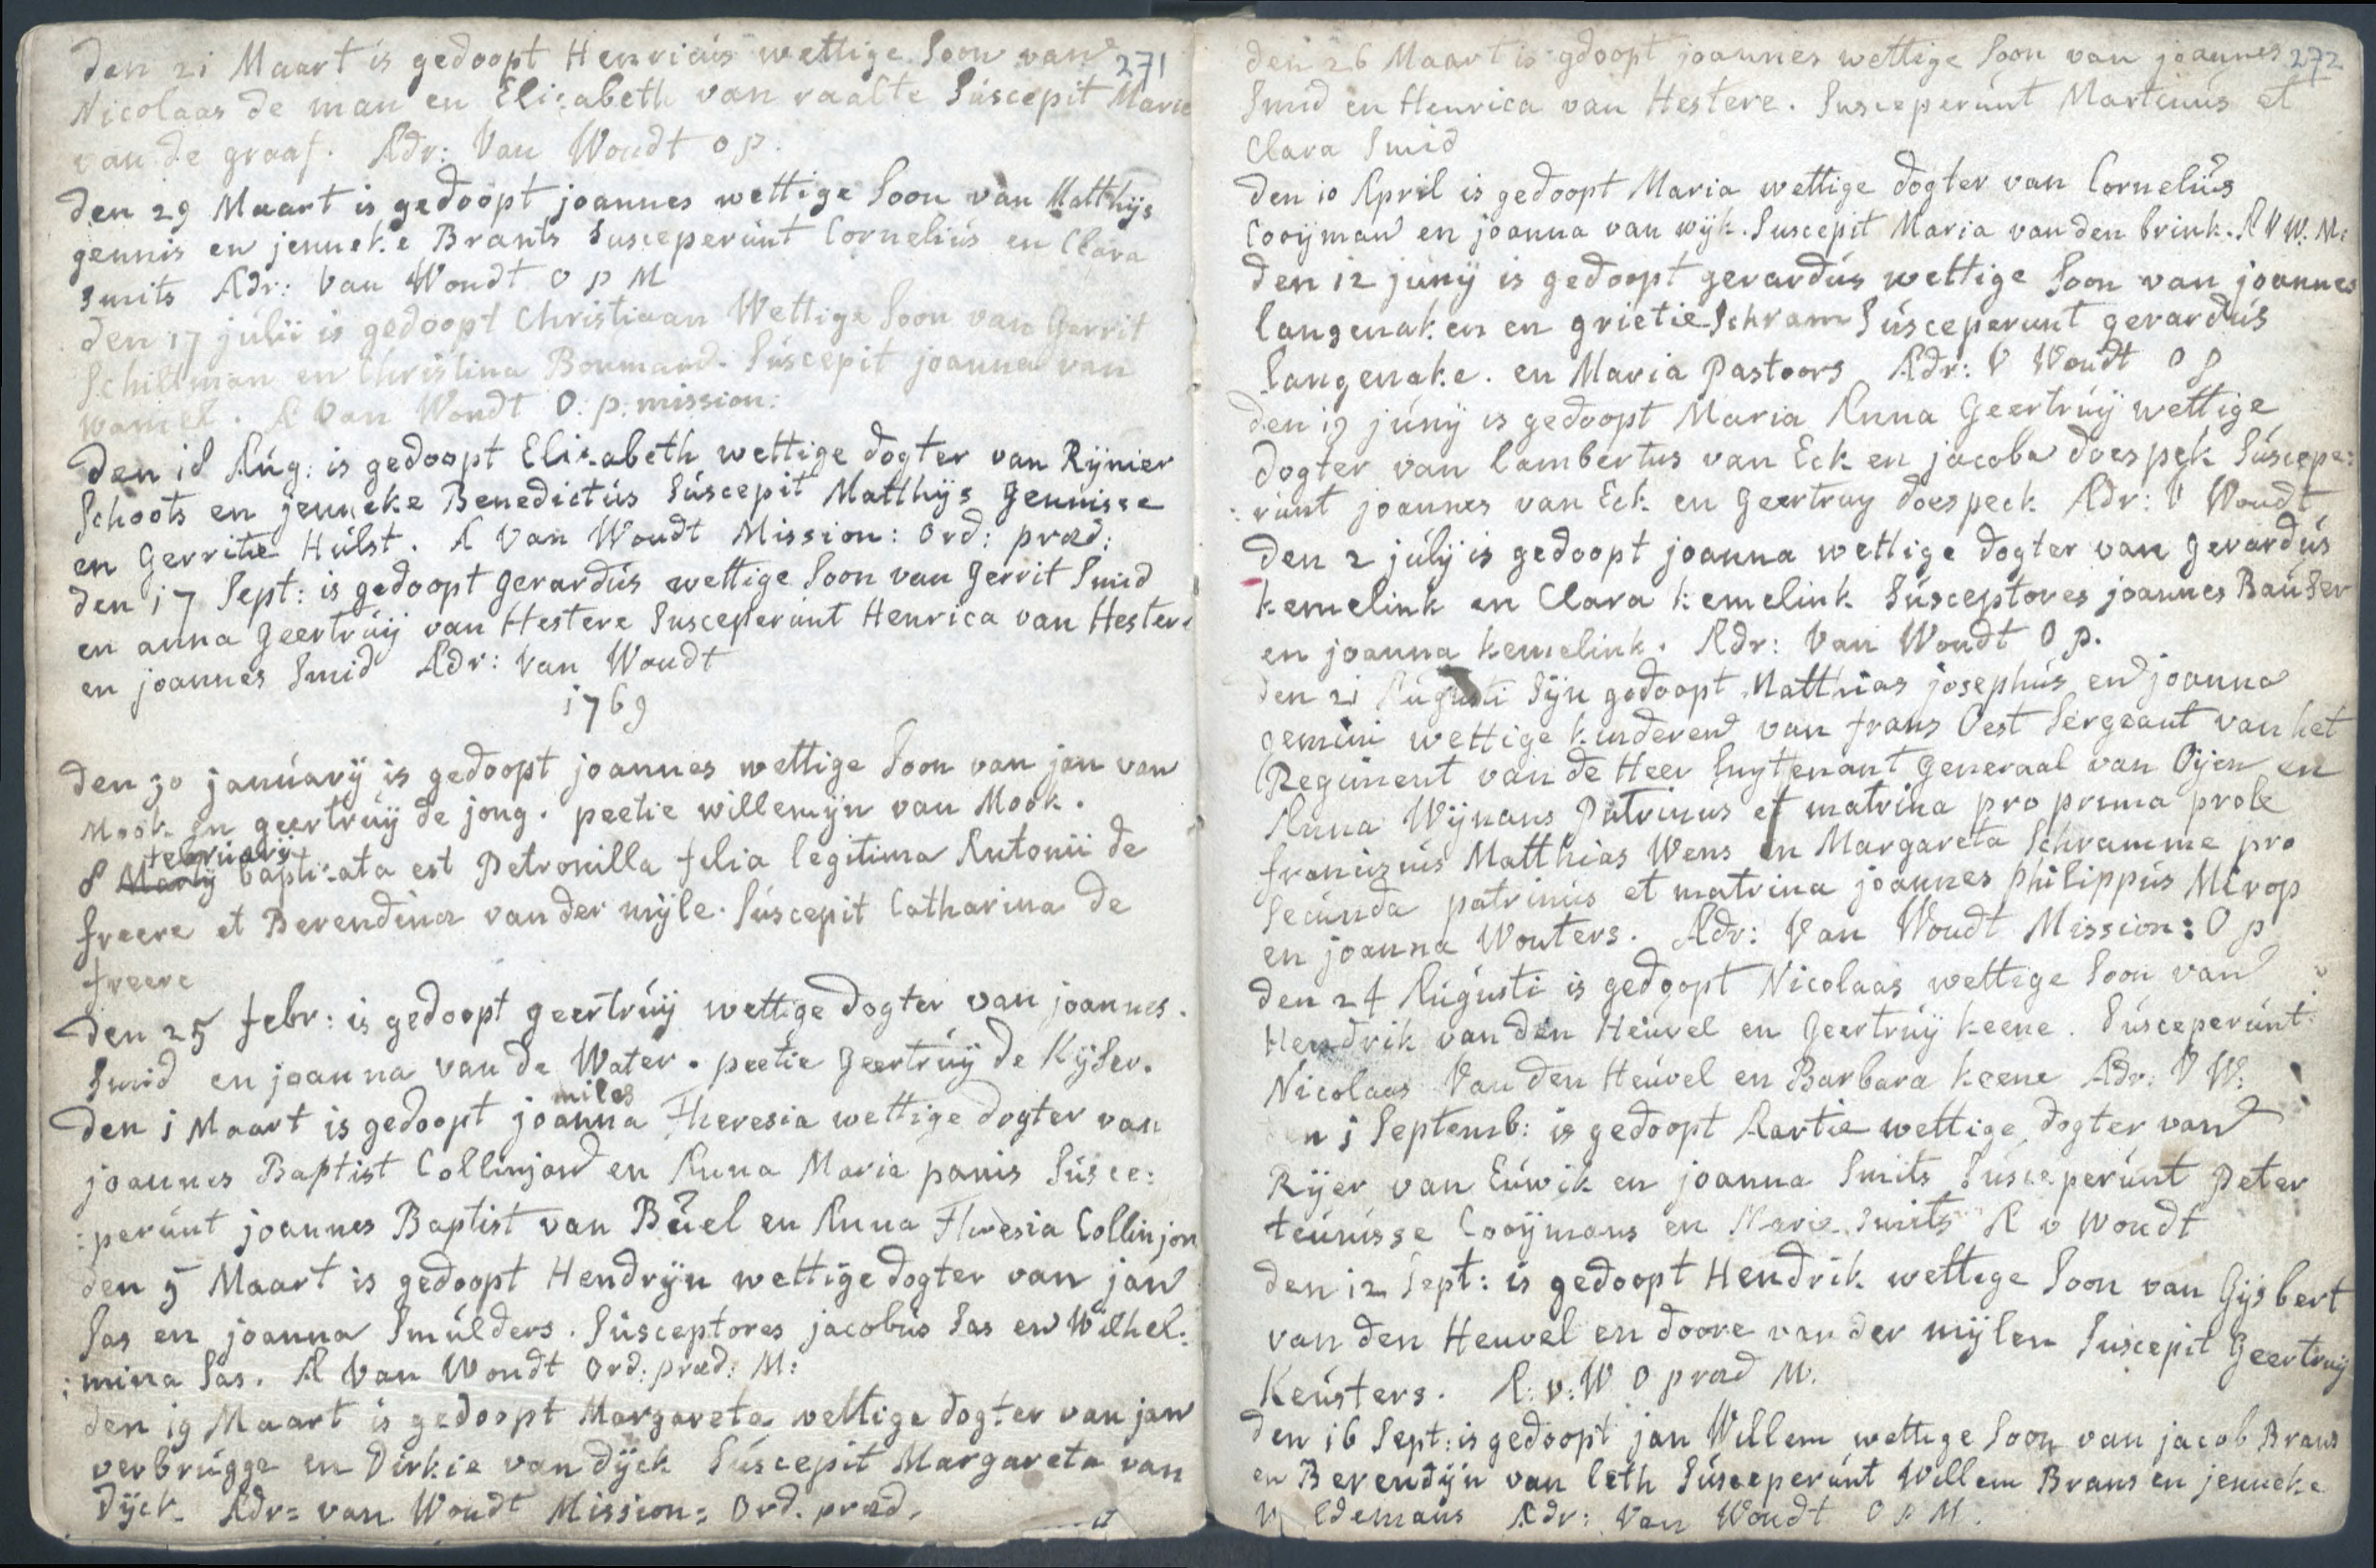 271
den 21 Maart is gedoopt Henricus wettige Soon van
Nicolaas de man en Elisabeth van raalte Suscepit Marie
van de graaf. Adr: Van Woudt o p.
den 29 Maart is gedoopt joannes wettige Soon van Matthijs
jennis en jenneke Brants Susceperunt Cornelius en Clara
Smits Adr: Van Woudt O p M
den 17 julii is gedoopt Christiaan Wettige Soon van Gerrit
Schiltman en Christina Boumand. Suscepit joanna van
wamel. A Van Woudt O: p: mission:
den 18 Aug: is gedoopt Elisabeth wettige dogter van Rijnier
Schoots en jenneke Benedictus Suscepit Matthijs Gennisse
en Gerritie Hulst. A Van Woudt Mission: Ord: præd:
den 17 Sept: is gedoopt gerardus wettige Soon van Gerrit Smid
en anna Geertruij van Hestere Susceperunt Henrica van Hestere
en joannes Smid Adr: Van Woudt
1769
den 30 januarij is gedoopt joannes wettige Soon van jan van
Mook en geertruij de jong. peetie willemijn van Mook.
februarij
8 Martij baptizata est Petronilla filia legitima Antonii de
freere et Berendina van der mijle. Suscepit Catharina de
freere
den 25 febr: is gedoopt geertruij wettige dogter van joannes.
Smid en joanna van de Water. peetie Geertruij de Kijser.
miles
den 1 Maart is gedoopt joanna Theresia wettige dogter van
joannes Baptist Collinjon en Anna Maria panis Susce:
:perunt joannes Baptist van Buel en Anna Theresia Collinjon
den 5 Maart is gedoopt Hendrijn wettige dogter van jan
Sas en joanna Smulders. Susceptores jacobus Sas en Wilhel:
:mina Sas. A Van Woudt Ord: præd: M:
den 19 Maart is gedoopt Margareta wettige dogter van jan
verbrugge en Dirkie van dijck Suscepit Margareta van
Dijck. Adr: van Woudt Mission: Ord. præd.
272
den 26 Maart is gdoopt joannes wettige Soon van joannes
Smid en Henrica van Hestere. Susceperunt Martinus et
Clara Smid
den 10 April is gedoopt Maria wettige dogter van Cornelius
Cooijman en joanna van wijk. Suscepit Maria van den brink. A V W. M:
den 12 junij is gedoopt gerardus wettige Soon van joannes
langenaken en grietie Schram Susceperunt gerardus
langenake. en Maria Pastoors Adr: V Woudt O p
den 19 junij is gedoopt Maria Anna Geertruij wettige
dogter van lambertus van Eck en jacoba doespek Suscepe:
:runt joannes van Eck en Geertruy doespeck Adr: V Woudt
den 2 julij is gedoopt joanna wettige dogter van Gerardus
kemelink en Clara kemelink Susceptores joannes Bauser
en joanna kemelink. Adr: Van Woudt O p.
den 21 Augusti Sijn gedoopt Matthias josephus en joanna
gemini wettige kinderen van frans Oest Sergeant van het
Regiment van de Heer luyttenant generaal van Oijen en
Anna Wijnans Patrinus et matrina pro prima prole
franciscus Matthias Wens en Margareta Schramme pro
Secunda patrinus et matrina joannes philippus Merop
en joanna Wouters. Adr: Van Woudt Mission: O p
den 24 Augusti is gedoopt Nicolaas wettige Soon van
Hendrik van den Heuvel en Geertruij keene. Susceperunt
Nicolaas Van den Heuvel en Barbara keene Adr: V W:
den 1 Septemb: is gedoopt Aartie wettige dogter van
Rijer van Euwik en joanna Smits Susceperunt Peter
teunisse Cooijmans en Marie Smits A v Woudt
den 12 Sept: is gedoopt Hendrik wettege Soon van Gijsbert
van den Heuvel en doore van der mijlen Suscepit Geertruij
Keusters. A: v: W O præd M.
den 16 Sept: is gedoopt jan Willem wettege Soon van jacob Brans
en Berendijn van leth Susceperunt Willem Brans en jenneke
edemans Adr: Van Woudt O p M.